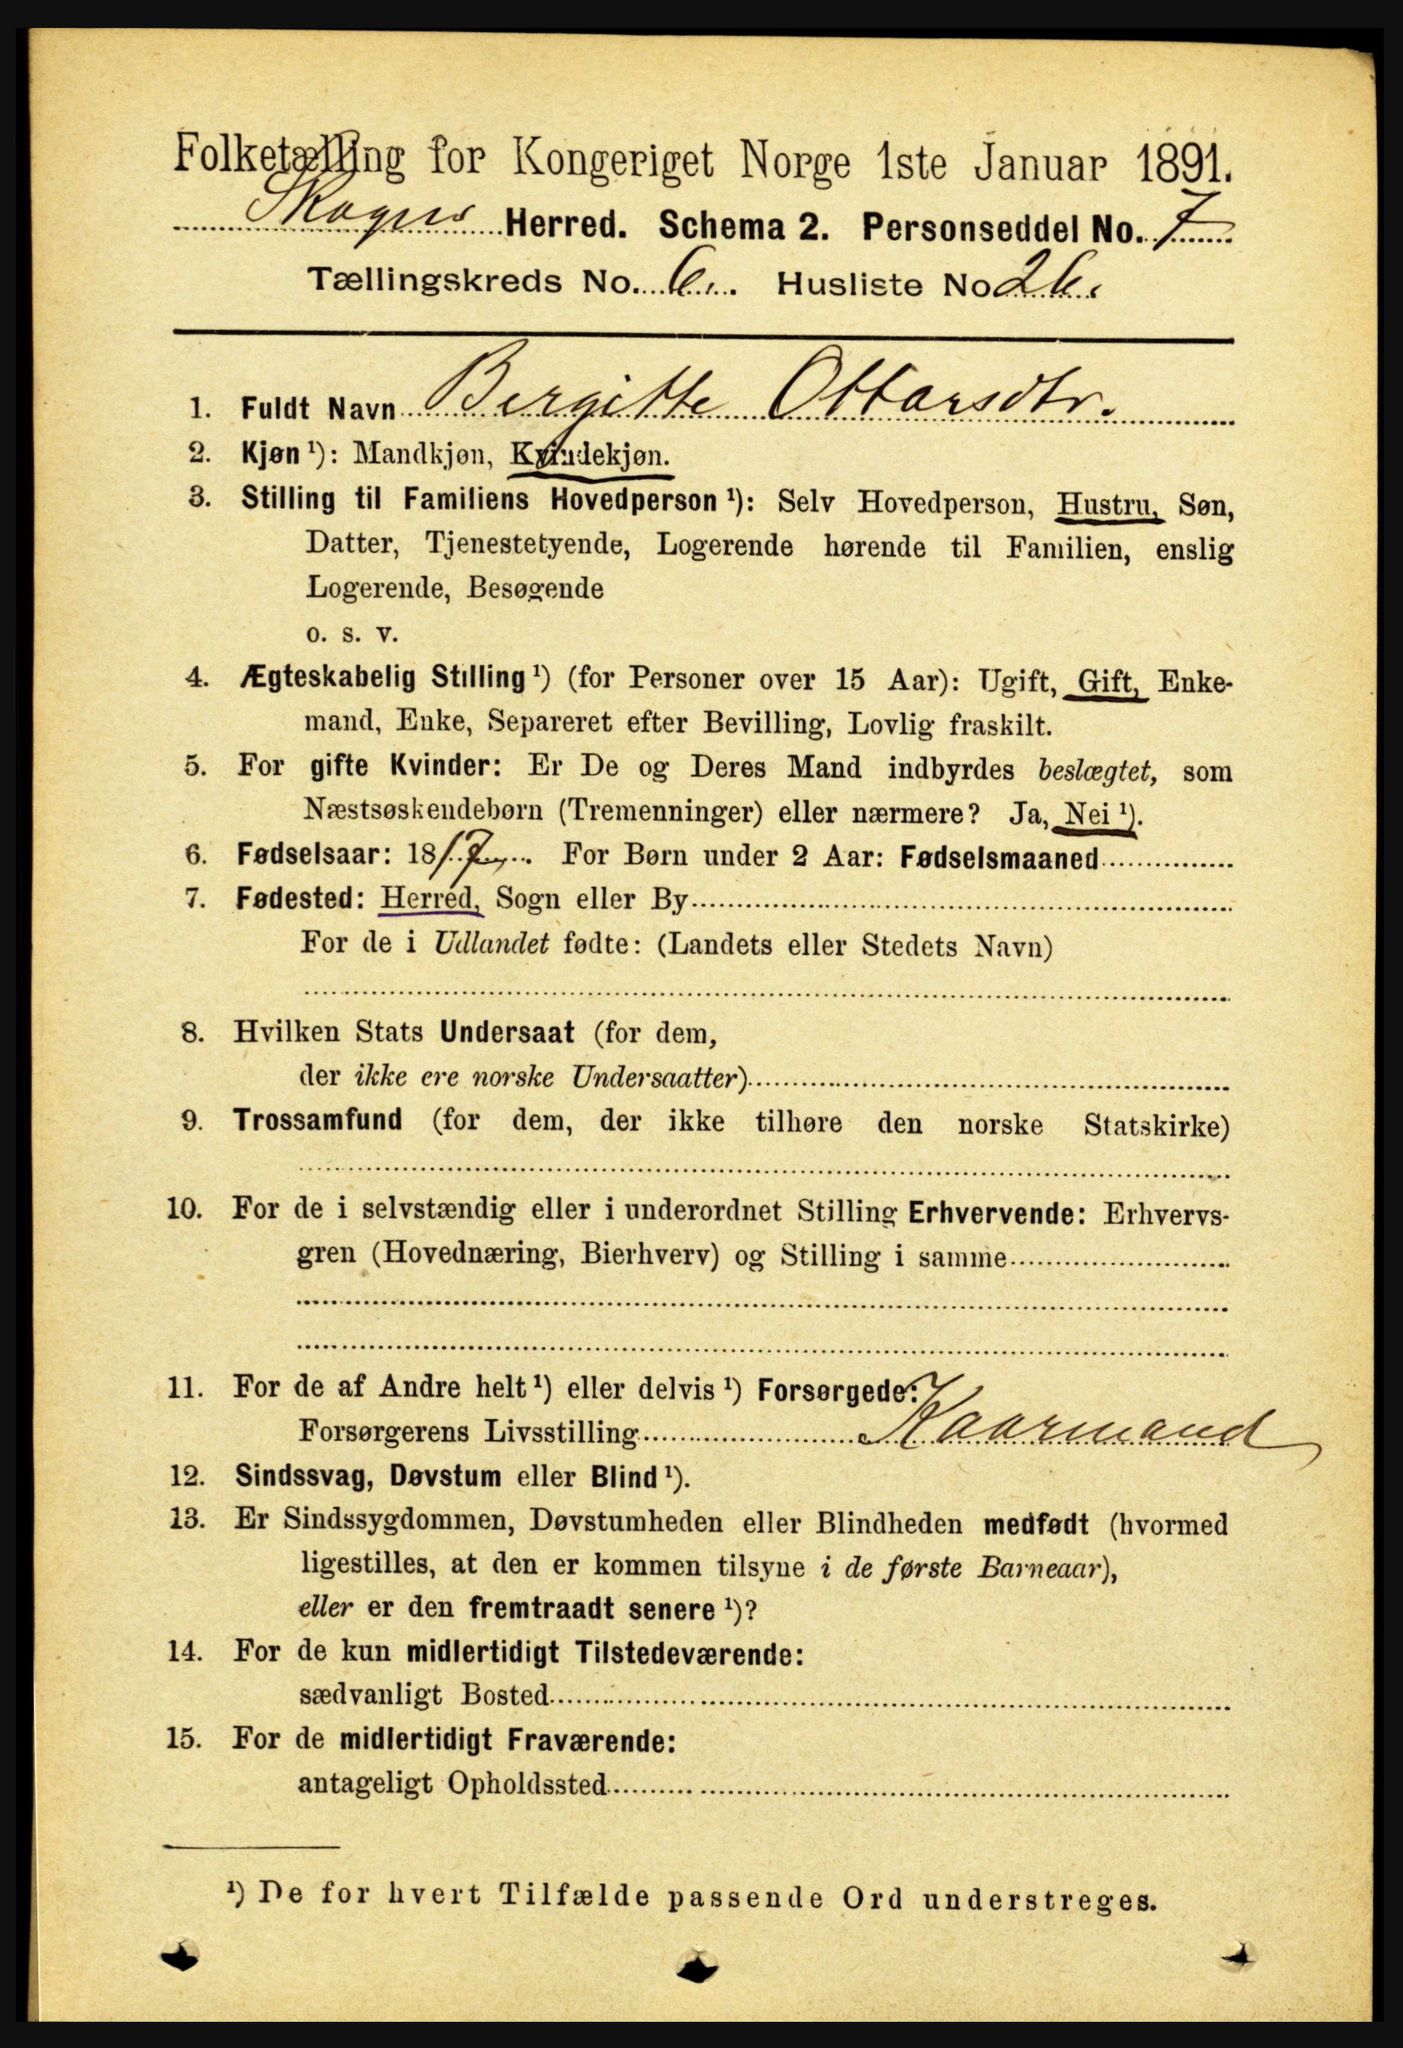 Folketælling for Kongeriget Norge 1ste Januar 1891.
Skogns Herred. Schema 2. Personseddel No. 7
Tællingskreds No. 6. Husliste No 26.
1. Fuldt Navn Bergitte Ottarsdtr.
2. Kjøn ¹): Mandkjøn, Kvindekjøn.
3. Stilling til Familiens Hovedperson ¹): Selv Hovedperson, Hustru, Søn,
Datter, Tjenestetyende, Logerende hørende til Familien, enslig
Logerende, Besøgende
o. s. v.
4. Ægteskabelig Stilling ¹) (for Personer over 15 Aar): Ugift, Gift, Enke-
mand, Enke, Separeret efter Bevilling, Lovlig fraskilt.
5. For gifte Kvinder: Er De og Deres Mand indbyrdes beslægtet, som
Næstsøskendebørn (Tremenninger) eller nærmere? Ja, Nei ¹).
6. Fødselsaar: 1817. For Børn under 2 Aar: Fødselsmaaned
7. Fødested: Herred, Sogn eller By
For de i Udlandet fødte: (Landets eller Stedets Navn)
8. Hvilken Stats Undersaat (for dem,
der ikke ere norske Undersaatter)
9. Trossamfund (for dem, der ikke tilhøre den norske Statskirke)
10. For de i selvstændig eller i underordnet Stilling Erhvervende: Erhvervs-
gren (Hovednæring, Bierhverv) og Stilling i samme
11. For de af Andre helt ¹) eller delvis ¹) Forsørgede:
Forsørgerens Livsstilling Kaarmand
12. Sindssvag, Døvstum eller Blind ¹).
13. Er Sindssygdommen, Døvstumheden eller Blindheden medfødt (hvormed
ligestilles, at den er kommen tilsyne i de første Barneaar),
eller er den fremtraadt senere ¹)?
14. For de kun midlertidigt Tilstedeværende:
sædvanligt Bosted
15. For de midlertidigt Fraværende:
antageligt Opholdssted
¹) De for hvert Tilfælde passende Ord understreges.